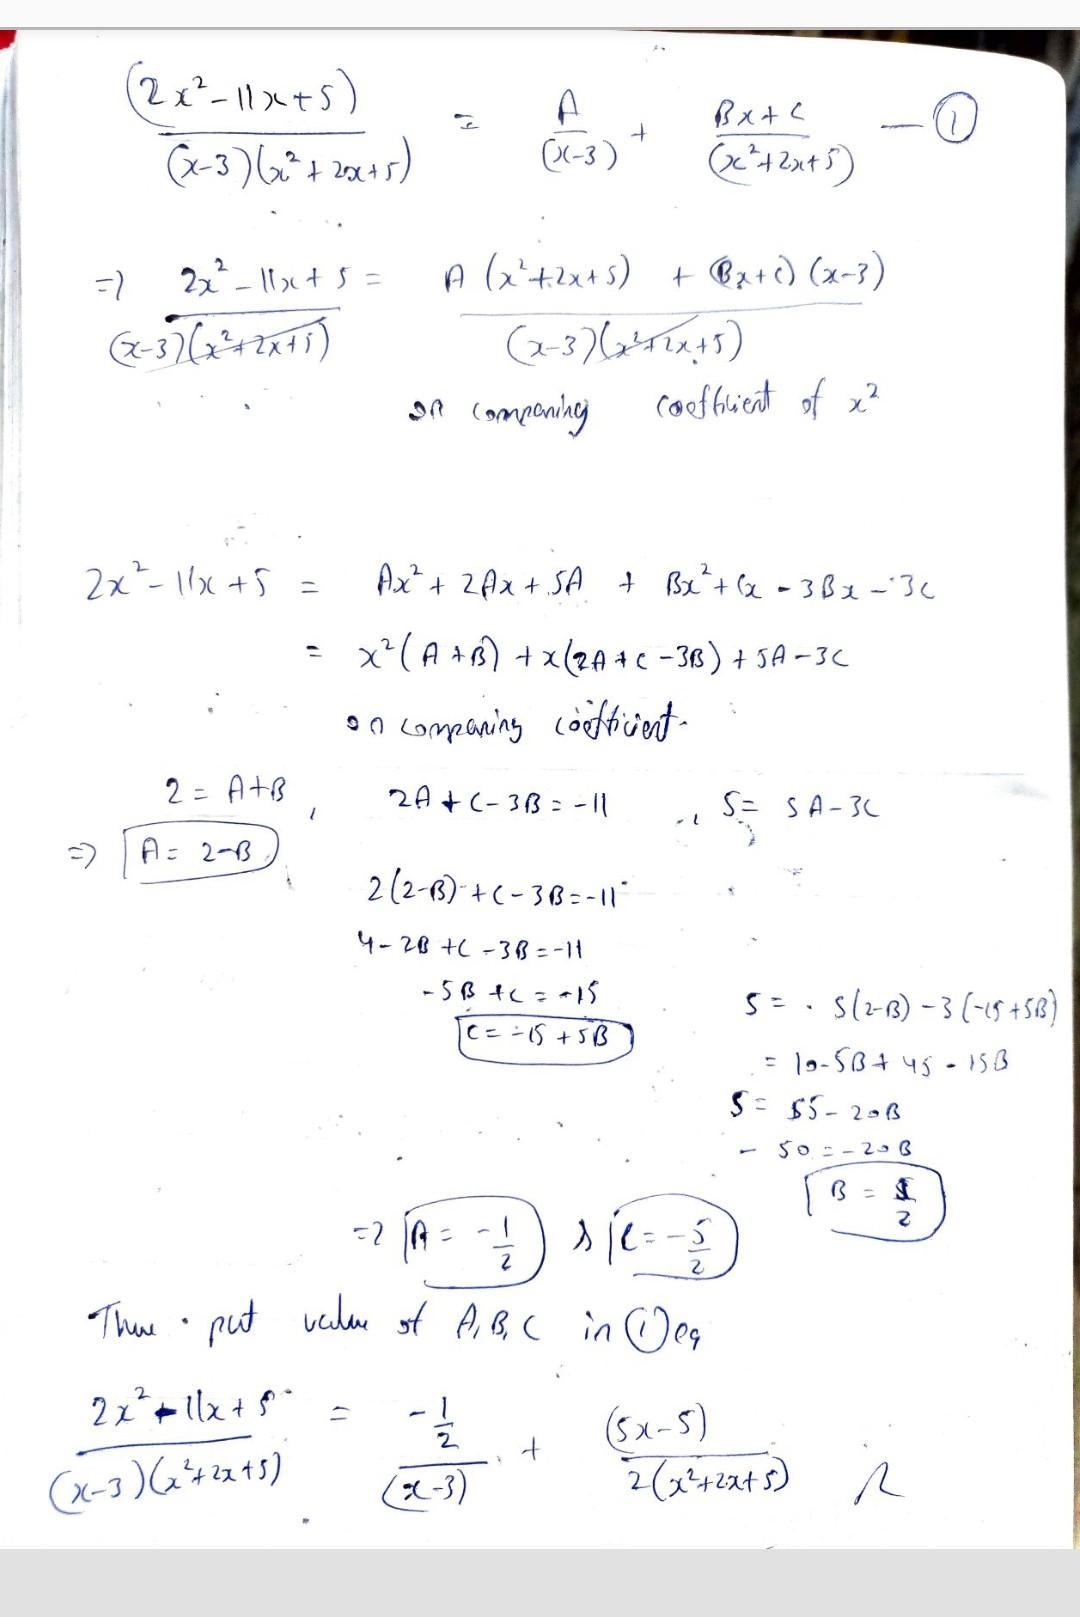 (2x²-11x+5) / (x-3)(x²+2x+5) = A/(x-3) + Bx+C/(x²+2x+5) — ①
=> 2x²-11x+5 / (x-3)(x²+2x+5) = A(x²+2x+5) + (Bx+C)(x-3) / (x-3)(x²+2x+5)
on comparing coefficient of x²
2x²-11x+5 = Ax²+2Ax+5A + Bx²+Cx-3Bx-3C
= x²(A+B)+x(2A+C-3B)+5A-3C
on comparing coefficient.
2 = A+B, 2A+C-3B=-11, 5= 5A-3C
=> A= 2-B
2(2-B)+C-3B=-11
4-2B+C-3B=-11
-5B+C=-15
C=-15+5B
5= 5(2-B)-3(-15+5B)
= 10-5B+45-15B
5= 55-20B
-50=-20B
B = 5/2
=> A= -1/2 & C= -5/2
put value of A, B, C in ① eq
2x²-11x+5 / (x-3)(x²+2x+5) = -1/2 / (x-3) + (5x-5) / 2(x²+2x+5)